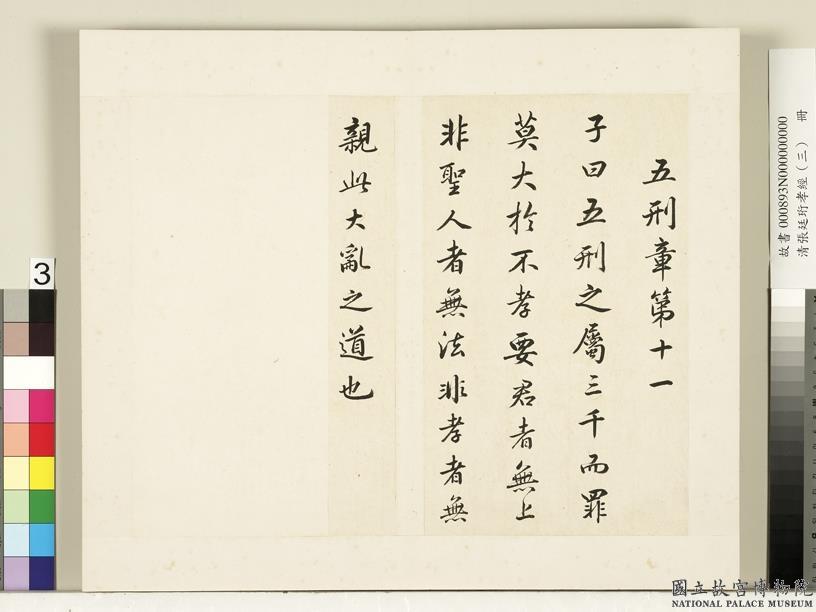 五刑章第十一
子曰五刑之屬三千而罪
莫大於不孝要君者無上
非聖人者無法非孝者無
親此大亂之道也
3
故書 000893N000000000
清張廷珩孝經（三） 冊
國立故宮博物院
NATIONAL PALACE MUSEUM